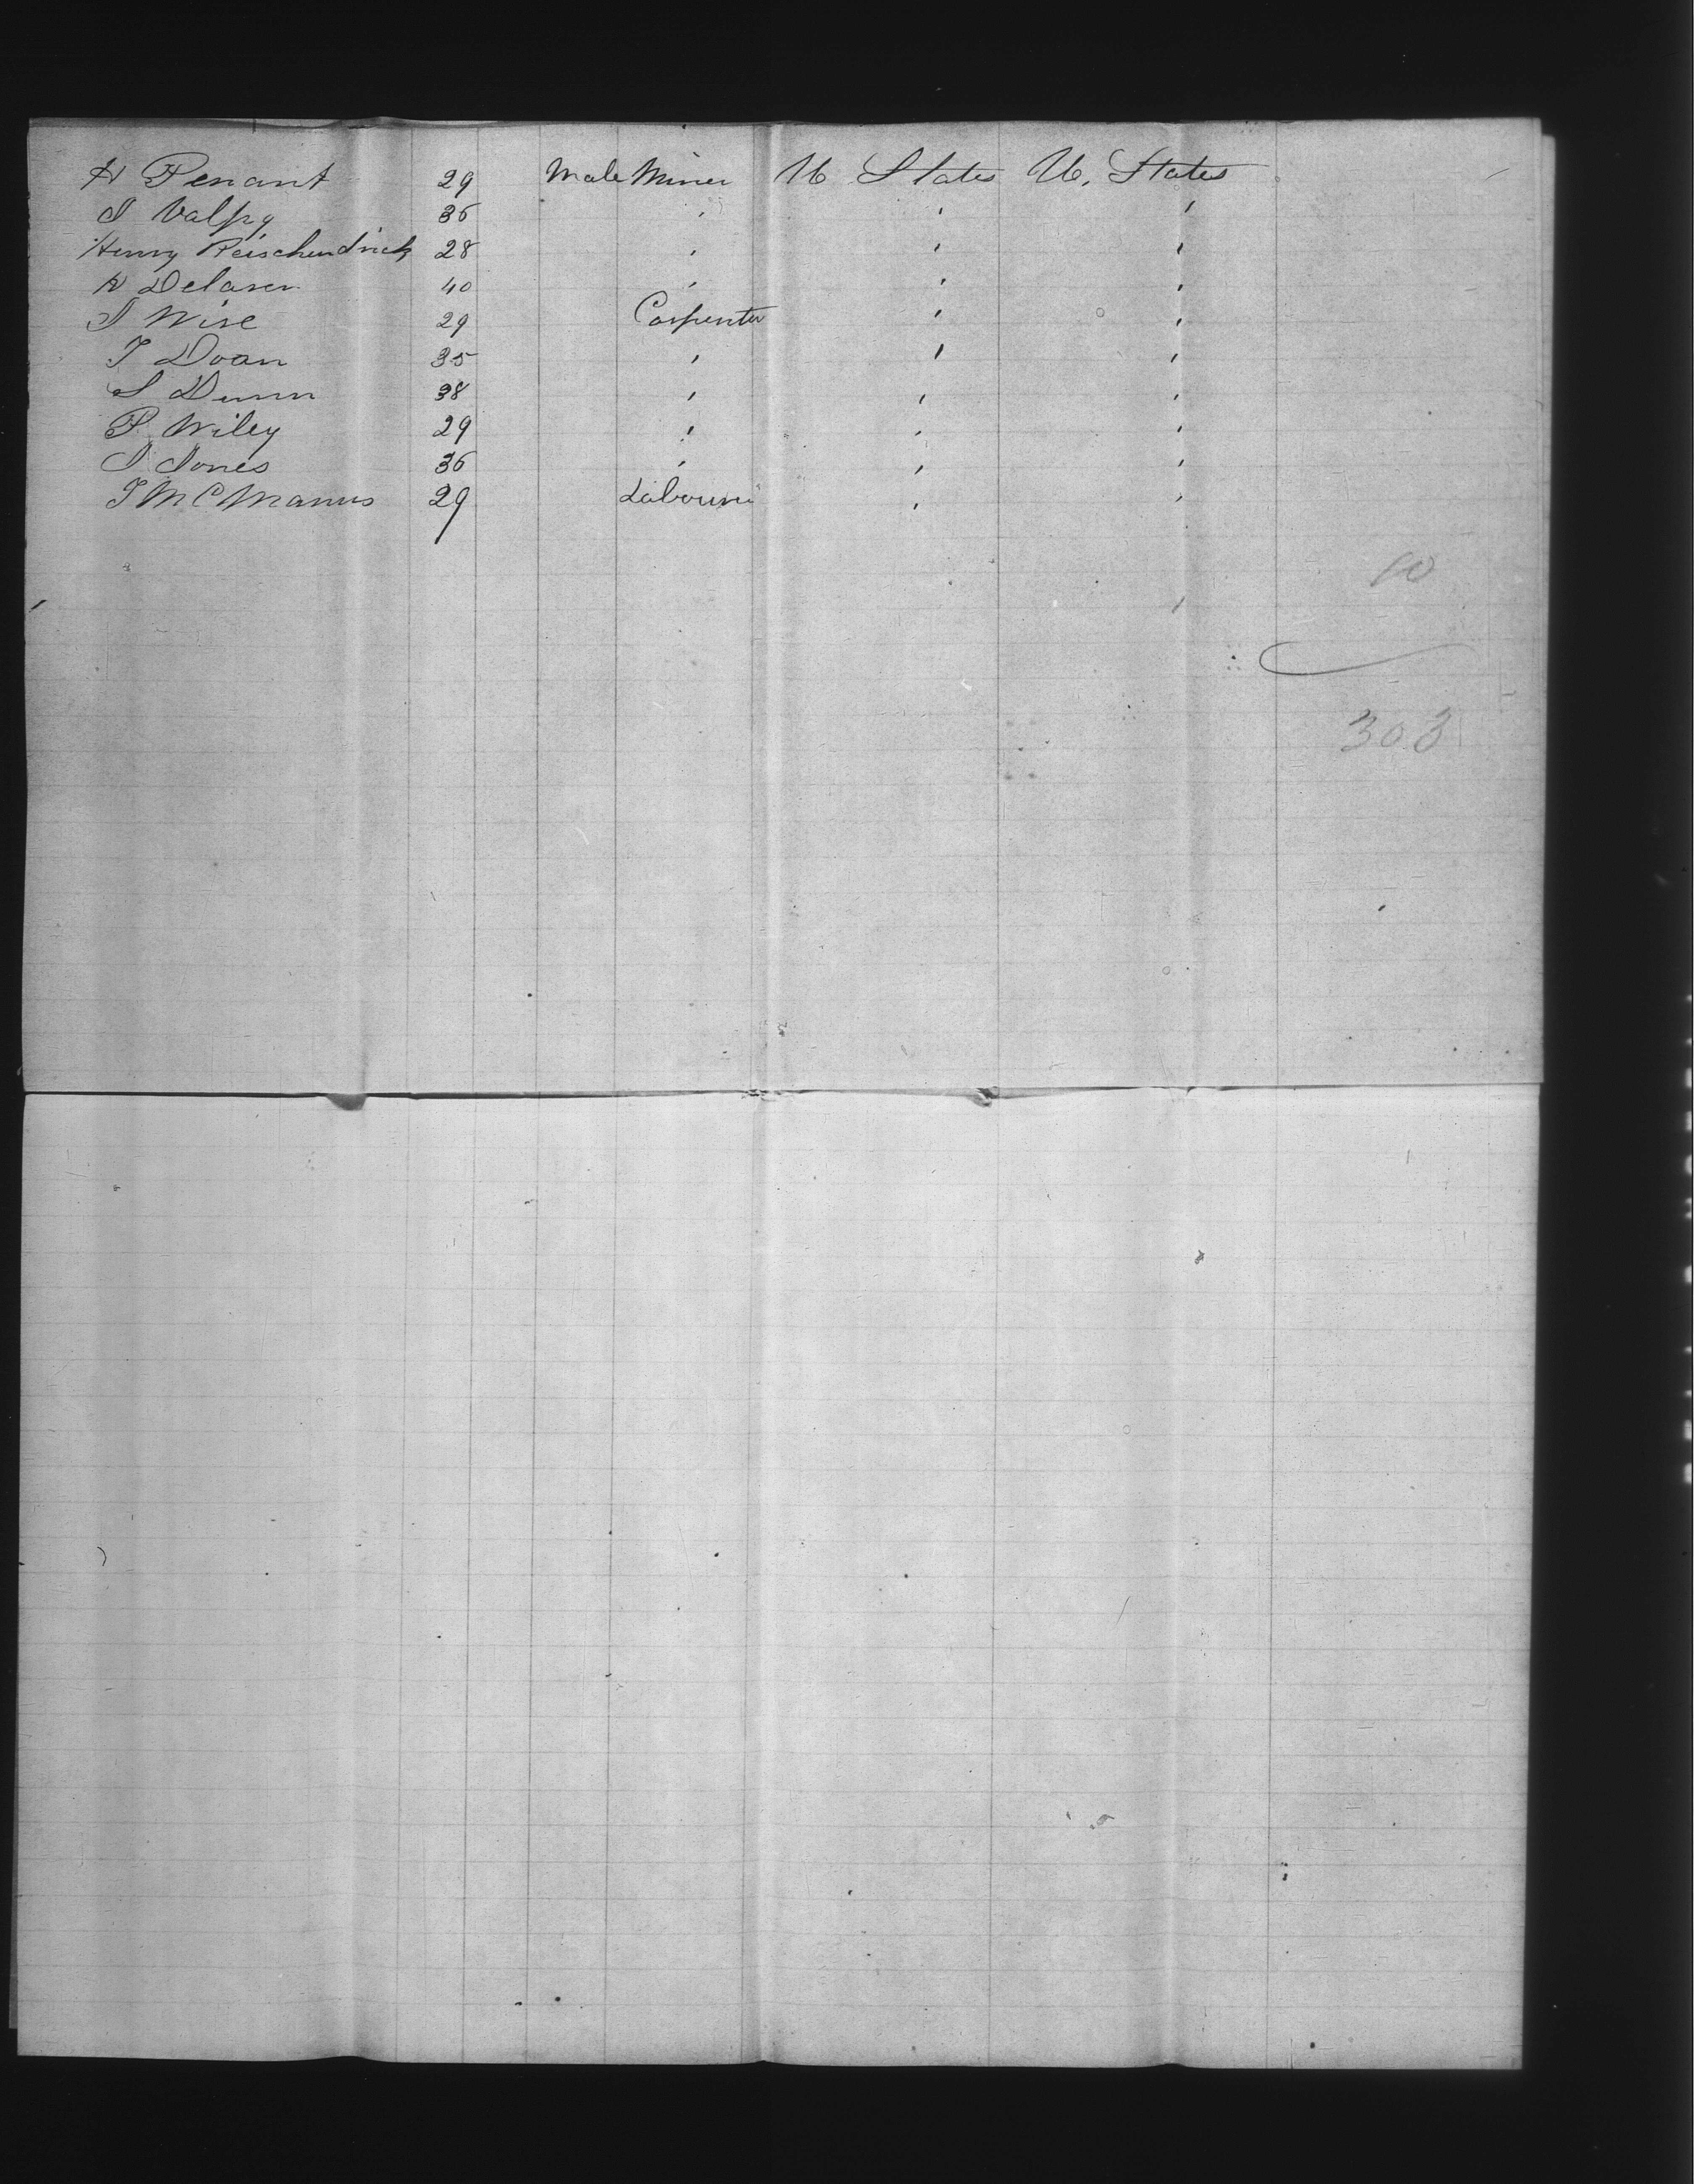 H Penant 29 Male Miner U States U. States
J Valpy 36 " " "
Henry Reischendrick 28 " " "
H Delaren 40 " " "
J Wise 29 Carpenter " "
J Doan 35 " " "
S Dunn 38 " " "
P. Wiley 29 " " "
J Jones 36 " " "
J McManus 29 Labourer " "
10
303